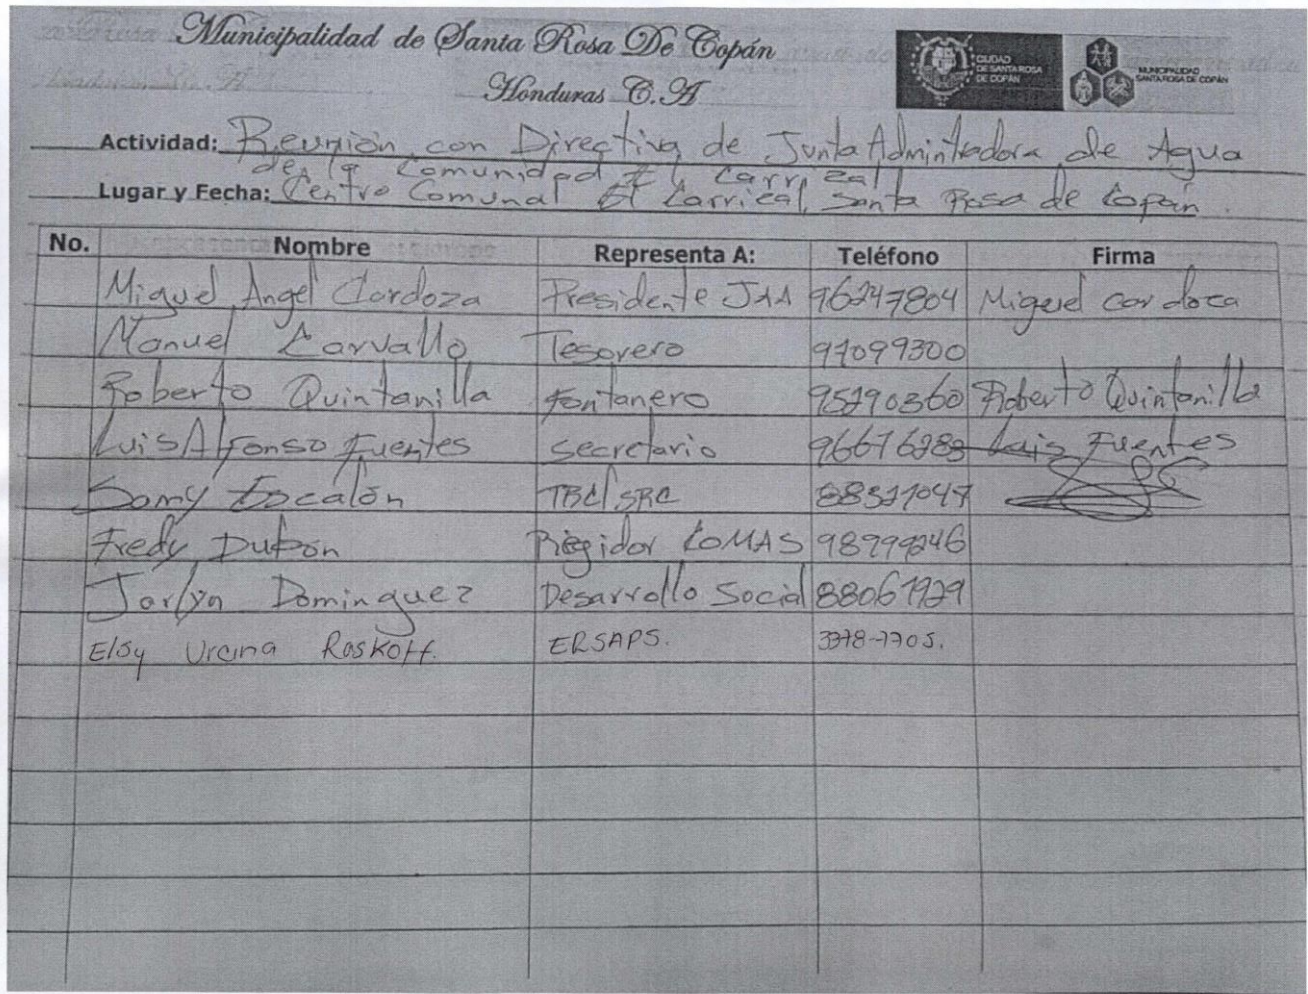 Municipalidad de Santa Rosa De Copán
Honduras C.A
CIUDAD
DE SANTA ROSA
DE COPÁN
MUNICIPALIDAD
SANTA ROSA DE COPÁN
Actividad: Reunión con Directiva de Junta Admintradora de Agua
de la Comunidad El Carrizal
Lugar y Fecha: Centro Comunal El Carrizal, Santa Rosa de Copán.
No. Nombre Representa A: Teléfono Firma
Miguel Angel Cardoza Presidente JAA 96247804 Miguel cardoza
Manuel Carvallo Tesorero 97099300
Roberto Quintanilla Fontanero 95290360 Roberto Quintanilla
Luis Alfonso Fuentes Secretario 96676283 Luis Fuentes
Somy Escalón TBC/SRC
Fredy Dubón Regidor COMAS
Jorlyn Dominguez Desarrollo Social
Elsy Urcina Roskoff. ERSAPS.